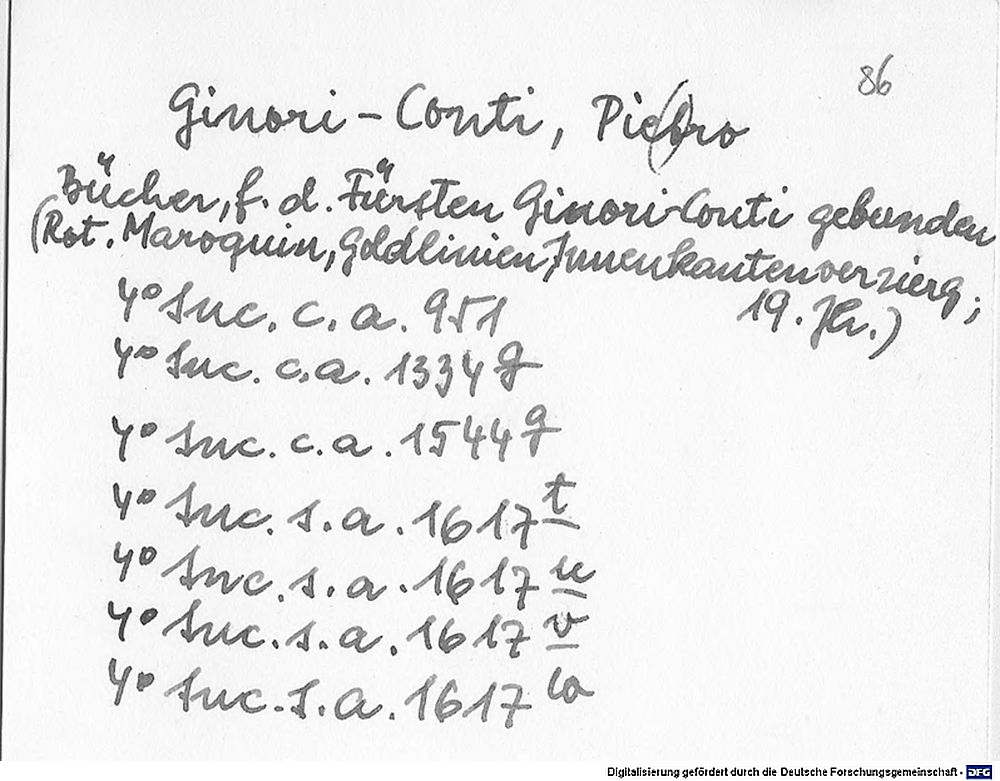 86
Ginori-Conti, Pietro
Bücher, f. d. Fürsten Ginori-Conti gebunden
(Rot. Maroquin, Goldlinien, Innenkantenverzierg;
19. Jh.)
4° Inc. c. a. 951
4° Inc. c. a. 1334 g
4° Inc. c. a. 1544 g
4° Inc. s. a. 1617 t
4° Inc. s. a. 1617 u
4° Inc. s. a. 1617 v
4° Inc. s. a. 1617
Digitalisierung gefördert durch die Deutsche Forschungsgemeinschaft - DFG